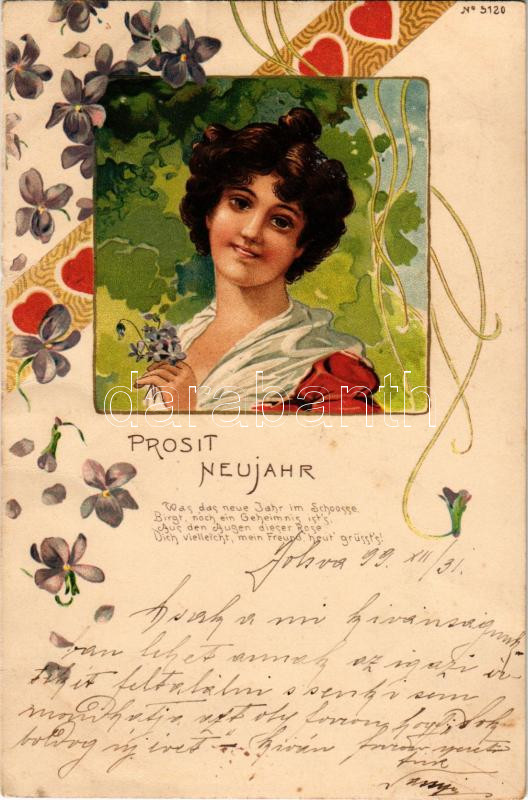 No 5120
darabanth
PROSIT
NEUJAHR
Was das neue Jahr im Schoosse
Birgt, noch ein Geheimnis ist's;
Aus den Augen dieser Rose
Dich vielleicht, mein Freund, heut' grüsst's!
Jolsva 99. XII/31.
Csak a mi kívánságunk-
ban lehet annak az igazi ér-
tékét feltalálni s senki sem
mondhatja azt oly forrón, hogy: "Sok
boldog új évet" – kíván